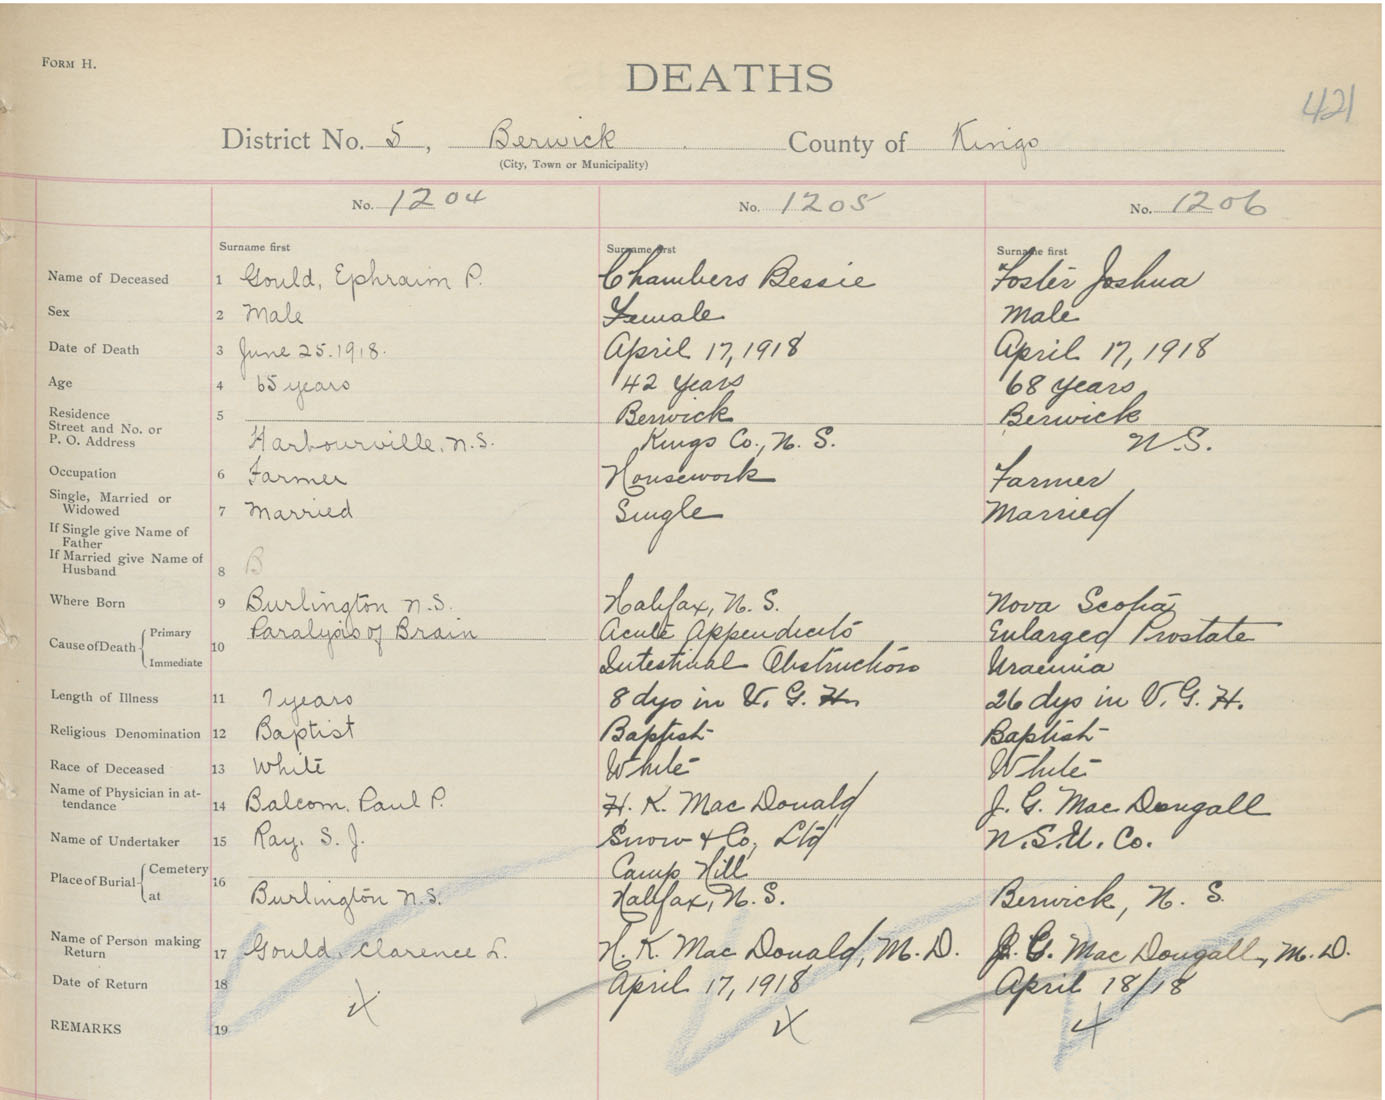 FORM H.
DEATHS
421
District No. 5, Berwick County of Kings
(City, Town or Municipality)
No. 1204 No. 1205 No. 1206
Surname first Surname first Surname first
Name of Deceased 1 Gould, Ephraim P. Chambers Bessie Foster Joshua
Sex 2 Male Female Male
Date of Death 3 June 25.1918. April 17, 1918 April 17, 1918
Age 4 65 years 42 years 68 years
Residence 5 Berwick Berwick
Street and No. or
P. O. Address Harbourville, N.S. Kings Co., N. S. N.S.
Occupation 6 Farmer Housework Farmer
Single, Married or
Widowed 7 Married Single Married
If Single give Name of
Father
If Married give Name of
Husband 8 B
Where Born 9 Burlington N.S. Halifax, N. S. Nova Scotia
Cause of Death { Primary 10 Paralysis of Brain Acute Appendicitis Enlarged Prostate
Immediate Intestinal Obstruction Uraemia
Length of Illness 11 7 years 8 dys in V. G. H. 26 dys in V. G. H.
Religious Denomination 12 Baptist Baptist Baptist
Race of Deceased 13 White White White
Name of Physician in at-
tendance 14 Balcom, Paul P. H. K. MacDonald J. G. MacDougall
Name of Undertaker 15 Ray, S. J. Snow & Co, Ltd N.S.U. Co.
Place of Burial { Cemetery 16 Camp Hill
at Burlington N.S. Halifax, N. S. Berwick, N. S.
Name of Person making
Return 17 Gould, Clarence L. H. K. MacDonald, M. D. J. G. MacDougall, M. D.
Date of Return 18 April 17, 1918 April 18/18
REMARKS 19